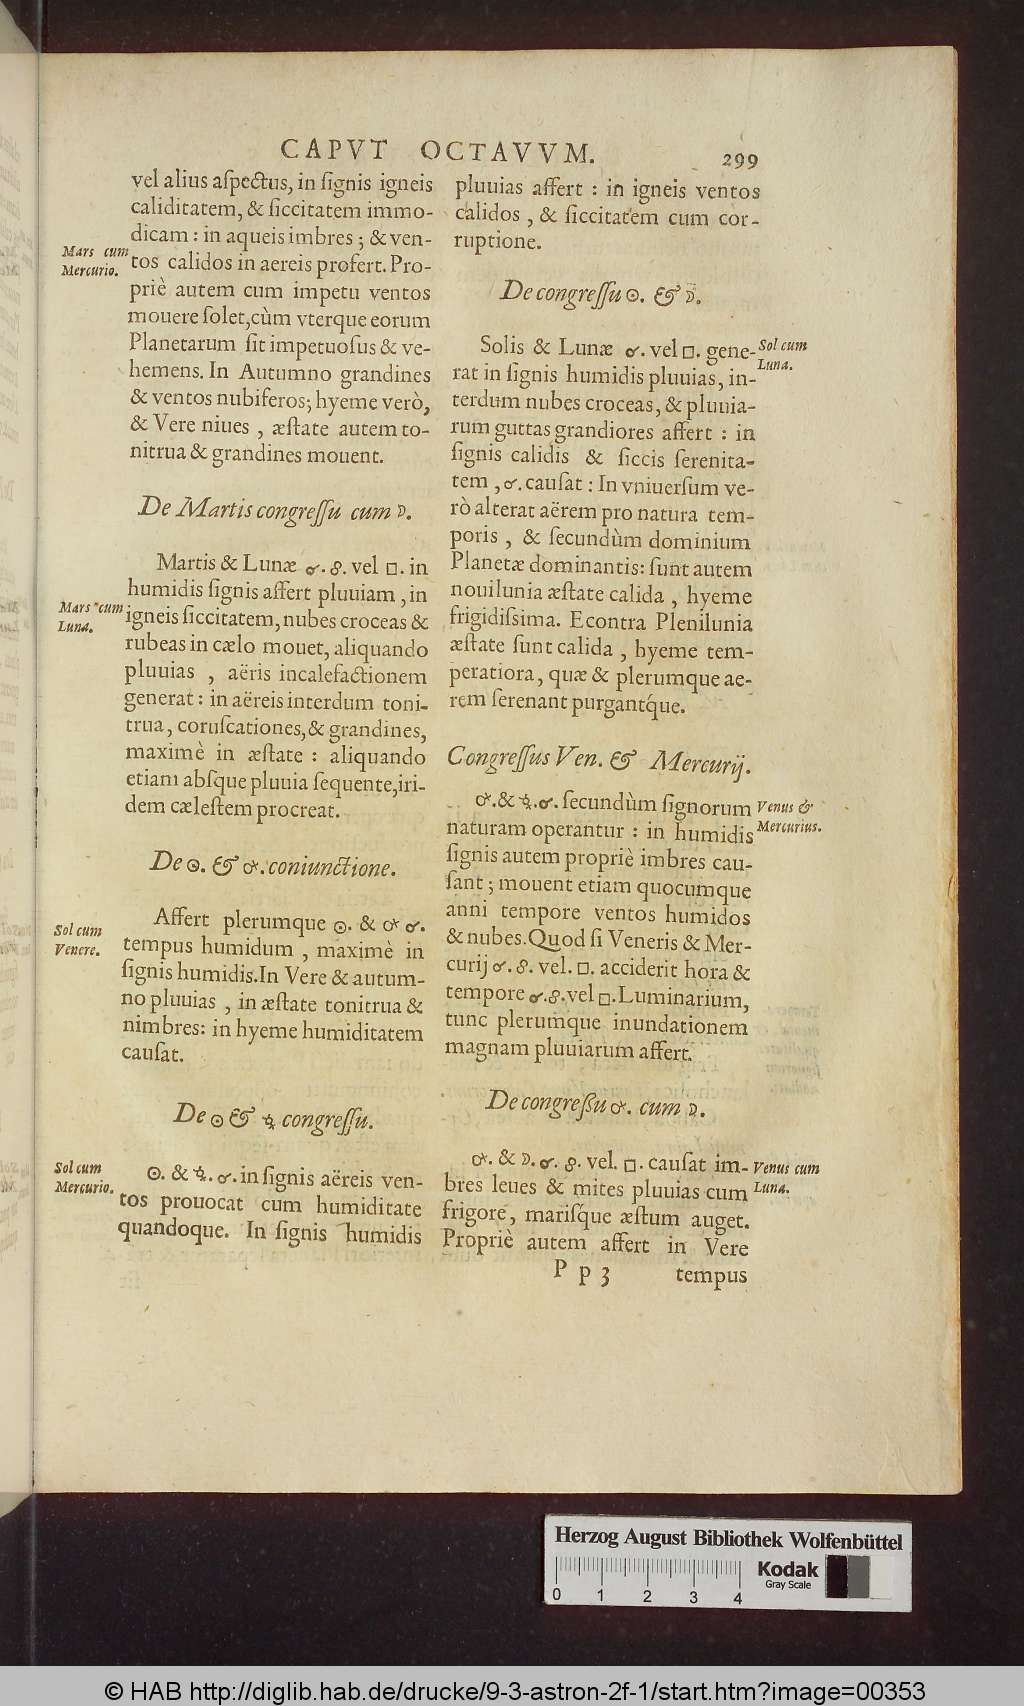 CAPVT OCTAVVM. 299
vel alius aſpectus, in ſignis igneis
caliditatem, & ſiccitatem immo-
dicam : in aqueis imbres ; & ven-
Mars cum
Mercurio.
tos calidos in aereis profert. Pro-
priè autem cum impetu ventos
mouere ſolet, cùm vterque eorum
Planetarum ſit impetuoſus & ve-
hemens. In Autumno grandines
& ventos nubiferos; hyeme verò,
& Vere niues , æſtate autem to-
nitrua & grandines mouent.
De Martis congreſſu cum ☽.
Martis & Lunæ ☌. ☍. vel □. in
humidis ſignis affert pluuiam , in
Mars cum
Luna.
igneis ſiccitatem, nubes croceas &
rubeas in cælo mouet, aliquando
pluuias , aëris incalefactionem
generat : in aëreis interdum toni-
trua, coruſcationes, & grandines,
maximè in æſtate : aliquando
etiam abſque pluuia ſequente, iri-
dem cæleſtem procreat.
De ☉. & ♀. coniunctione.
Affert plerumque ☉. & ♀ ☌.
Sol cum
Venere.
tempus humidum , maximè in
ſignis humidis. In Vere & autum-
no pluuias , in æſtate tonitrua &
nimbres: in hyeme humiditatem
cauſat.
De ☉ & ☿ congreſſu.
Sol cum
Mercurio.
☉. & ☿. ☌. in ſignis aëreis ven-
tos prouocat cum humiditate
quandoque. In ſignis humidis
pluuias affert : in igneis ventos
calidos , & ſiccitatem cum cor-
ruptione.
De congreſſu ☉. & ☽.
Solis & Lunæ ☌. vel □. gene-
Sol cum
Luna.
rat in ſignis humidis pluuias, in-
terdum nubes croceas, & pluuia-
rum guttas grandiores affert : in
ſignis calidis & ſiccis ſerenita-
tem , ☌. cauſat : In vniuerſum ve-
rò alterat aërem pro natura tem-
poris , & ſecundùm dominium
Planetæ dominantis: ſunt autem
nouilunia æſtate calida , hyeme
frigidiſsima. Econtra Plenilunia
æſtate ſunt calida , hyeme tem-
peratiora, quæ & plerumque ae-
rem ſerenant purgantq́ue.
Congreſſus Ven. & Mercurij.
♀. & ☿. ☌. ſecundùm ſignorum
Venus &
Mercurius.
naturam operantur : in humidis
ſignis autem propriè imbres cau-
ſant ; mouent etiam quocumque
anni tempore ventos humidos
& nubes. Quod ſi Veneris & Mer-
curij ☌. ☍. vel. □. acciderit hora &
tempore ☌. ☍. vel □. Luminarium,
tunc plerumque inundationem
magnam pluuiarum affert.
De congreſſu ♀. cum ☽.
♀. & ☽. ☌. ☍. vel. □. cauſat im-
Venus cum
Luna.
bres leues & mites pluuias cum
frigore, mariſque æſtum auget.
Propriè autem affert in Vere
P p 3 tempus
Herzog August Bibliothek Wolfenbüttel
Kodak
Gray Scale
0 1 2 3 4
© HAB http://diglib.hab.de/drucke/9-3-astron-2f-1/start.htm?image=00353